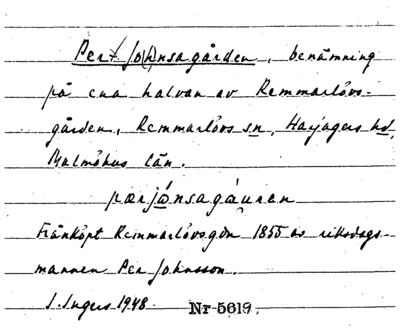 Per Jo(h)nsagården, benämning
på ena halvan av Remmarlövs-
gården, Remmarlövs sn, Harjagers hd,
Malmöhus län.
pærjånsagáuren
Frånköpt Remmarlövsgdn 1855 av riksdags-
mannen Per Johnsson.
I. Ingers 1948. Nr 5619.